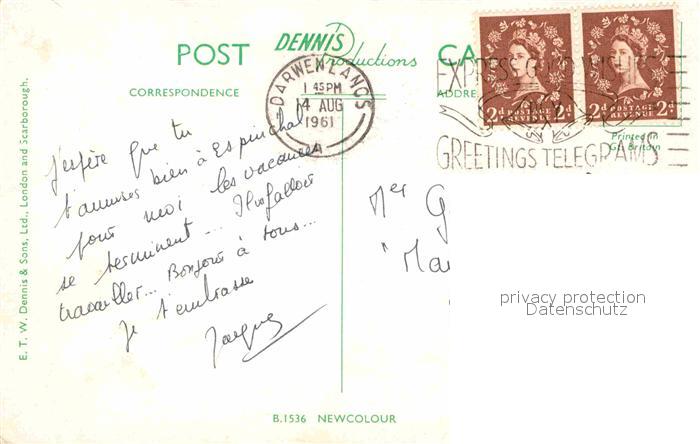 POST CARD
DENNIS Productions
CORRESPONDENCE
ADDRE
DARWEN LANCS
1 45 PM
14 AUG
1961
EXPRESS GOOD WISHES
GREETINGS TELEGRAMS
2d POSTAGE REVENUE 2d
2d POSTAGE REVENUE 2d
Printed in
Gt. Britain
E. T. W. Dennis & Sons, Ltd., London and Scarborough.
J'espère que tu
t'amuses bien à Espinchal
pour moi les vacances
se terminent...
Il va falloir
travailler... Bonjour à tous...
Je t'embrasse
Jacques
Mer G
"Ma
privacy protection
Datenschutz
B.1536 NEWCOLOUR